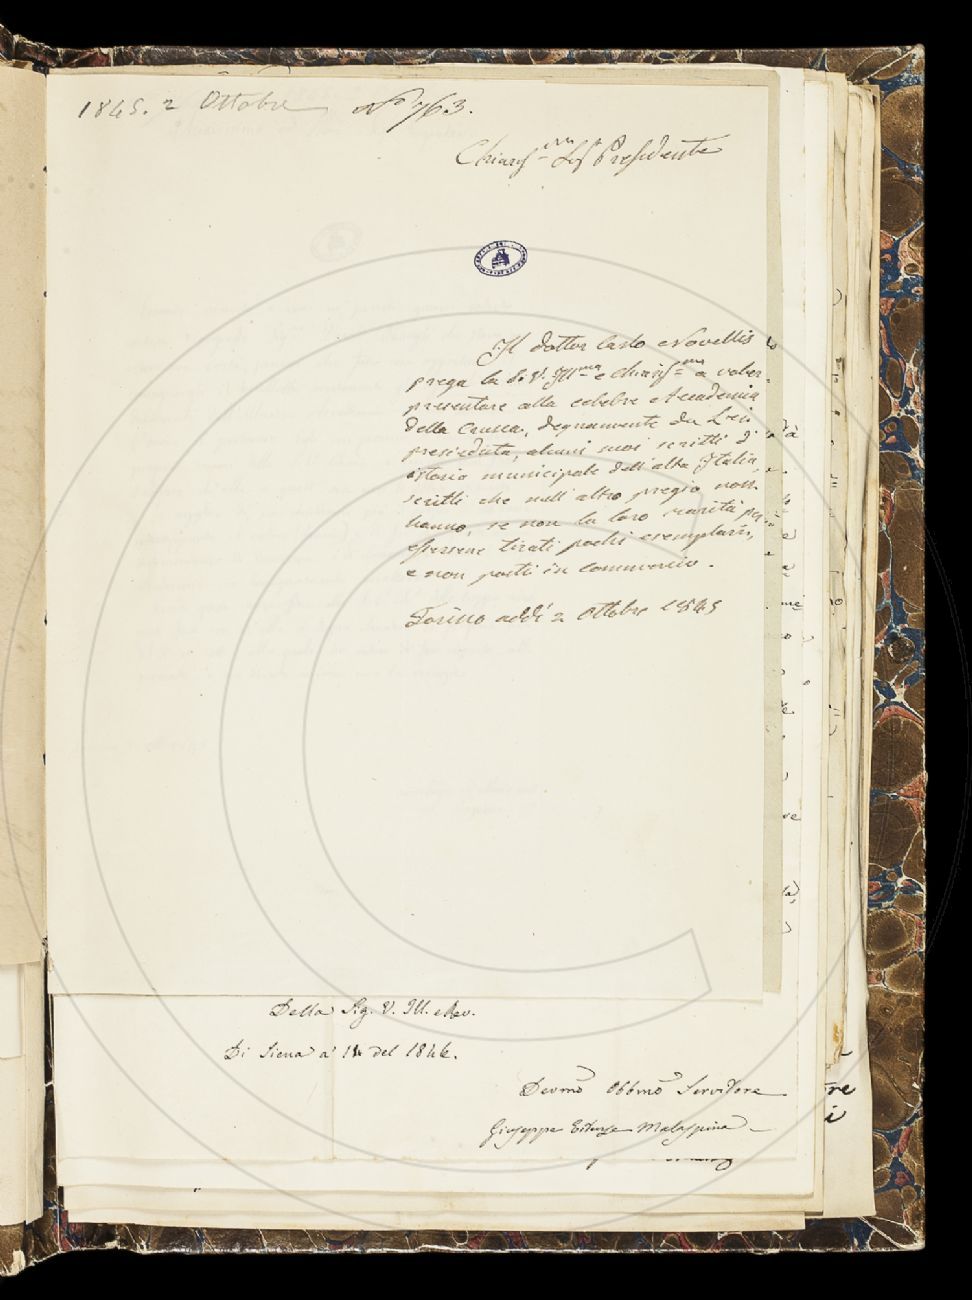 1845. 2 Ottobre N.º 763.
Chiariss.mo Sigr Presidente
Il dottor Carlo Novellis
prega la S. V. Ill.ma e Chiariss.ma a voler
presentare alla celebre Accademia
della Crusca, degnamente da Lei
presieduta, alcuni suoi scritti di
storia municipale dell'alta Italia,
scritti che null'altro pregio non
hanno, se non la loro rarità per
essersene tirati pochi esemplari,
e non posti in commercio.
Torino addì 2 Ottobre 1845
Della Sig. V. Ill. e Rev.
Di Siena a' 14 del 1846.
Devmo Obbmo Servitore
Giuseppe Malaspina